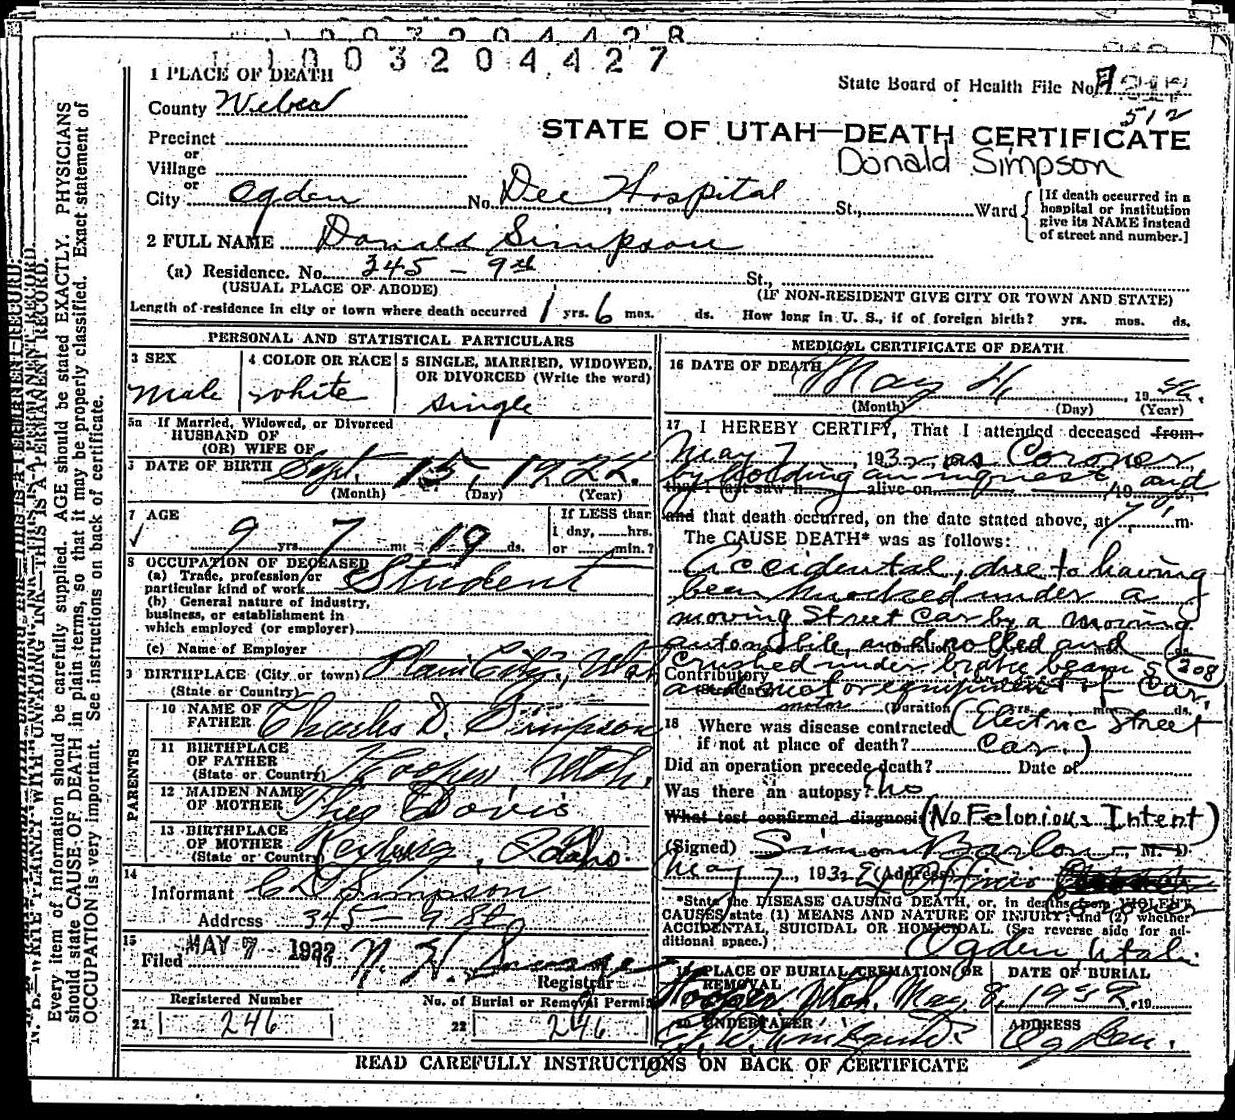 1003204427
1 PLACE OF DEATH
State Board of Health File No.
County Weber
512
Precinct
STATE OF UTAH—DEATH CERTIFICATE
or
Donald Simpson
Village
or
City Ogden No. Dee Hospital St., Ward
[If death occurred in a
hospital or institution
give its NAME instead
of street and number.]
2 FULL NAME Donald Simpson
(a) Residence. No. 345 - 9th St.,
(USUAL PLACE OF ABODE) (IF NON-RESIDENT GIVE CITY OR TOWN AND STATE)
Length of residence in city or town where death occurred 1 yrs. 6 mos. ds. How long in U. S., if of foreign birth? yrs. mos. ds.
PERSONAL AND STATISTICAL PARTICULARS
3 SEX
male
4 COLOR OR RACE
white
5 SINGLE, MARRIED, WIDOWED,
OR DIVORCED (Write the word)
single
5a If Married, Widowed, or Divorced
HUSBAND OF
(OR) WIFE OF
DATE OF BIRTH Sept. 15, 1922.
(Month) (Day) (Year)
7 AGE
9 yrs. 7 m 19 ds.
If LESS than
1 day, hrs.
or min.?
8 OCCUPATION OF DECEASED
(a) Trade, profession or
particular kind of work Student
(b) General nature of industry,
business, or establishment in
which employed (or employer)
(c) Name of Employer
9 BIRTHPLACE (City or town) Plain City, Utah
(State or Country)
PARENTS
10 NAME OF
FATHER Charles D. Simpson
11 BIRTHPLACE
OF FATHER
(State or Country) Hooper Utah.
12 MAIDEN NAME
OF MOTHER Theo Davis
13 BIRTHPLACE
OF MOTHER
(State or Country) Rexburg, Idaho.
14
Informant C D Simpson
Address 345 - 9 St
15
Filed MAY 7 1932
Registrar
Registered Number
21 246
No. of Burial or Removal Permit
22 246
MEDICAL CERTIFICATE OF DEATH
16 DATE OF DEATH
May 4, 19
(Month) (Day) (Year)
17 I HEREBY CERTIFY, That I attended deceased from
May 7, 1932, as Coroner
by holding an inquest and
that I last saw h alive on 19
and that death occurred, on the date stated above, at 7 P. m.
The CAUSE DEATH* was as follows:
Accidental, due to having
been knocked under a
moving Street Car by a moving
automobile, and rolled and
crushed under brake beams
208
Contributory
and motor equipment of Car.
motor
(Duration yrs. mos. ds.
18 Where was disease contracted (Electric Street
if not at place of death? Car.)
Did an operation precede death? Date of
Was there an autopsy? no
What test confirmed diagnosis (No Felonious Intent)
(Signed) Simon Barlow M. D.
May 7, 1932 (Address)
*State the DISEASE CAUSING DEATH, or, in deaths from VIOLENT
CAUSES state (1) MEANS AND NATURE OF INJURY; and (2) whether
ACCIDENTAL, SUICIDAL OR HOMICIDAL. (See reverse side for ad-
ditional space.)
Ogden, Utah.
19 PLACE OF BURIAL, CREMATION OR
REMOVAL
Hooper Utah. May 8, 1932
DATE OF BURIAL
19
20 UNDERTAKER
ADDRESS
Ogden.
READ CAREFULLY INSTRUCTIONS ON BACK OF CERTIFICATE
N. B.—WRITE PLAINLY WITH UNFADING INK—THIS IS A PERMANENT RECORD.
Every item of information should be carefully supplied. AGE should be stated EXACTLY. PHYSICIANS
should state CAUSE OF DEATH in plain terms, so that it may be properly classified. Exact statement of
OCCUPATION is very important. See instructions on back of certificate.